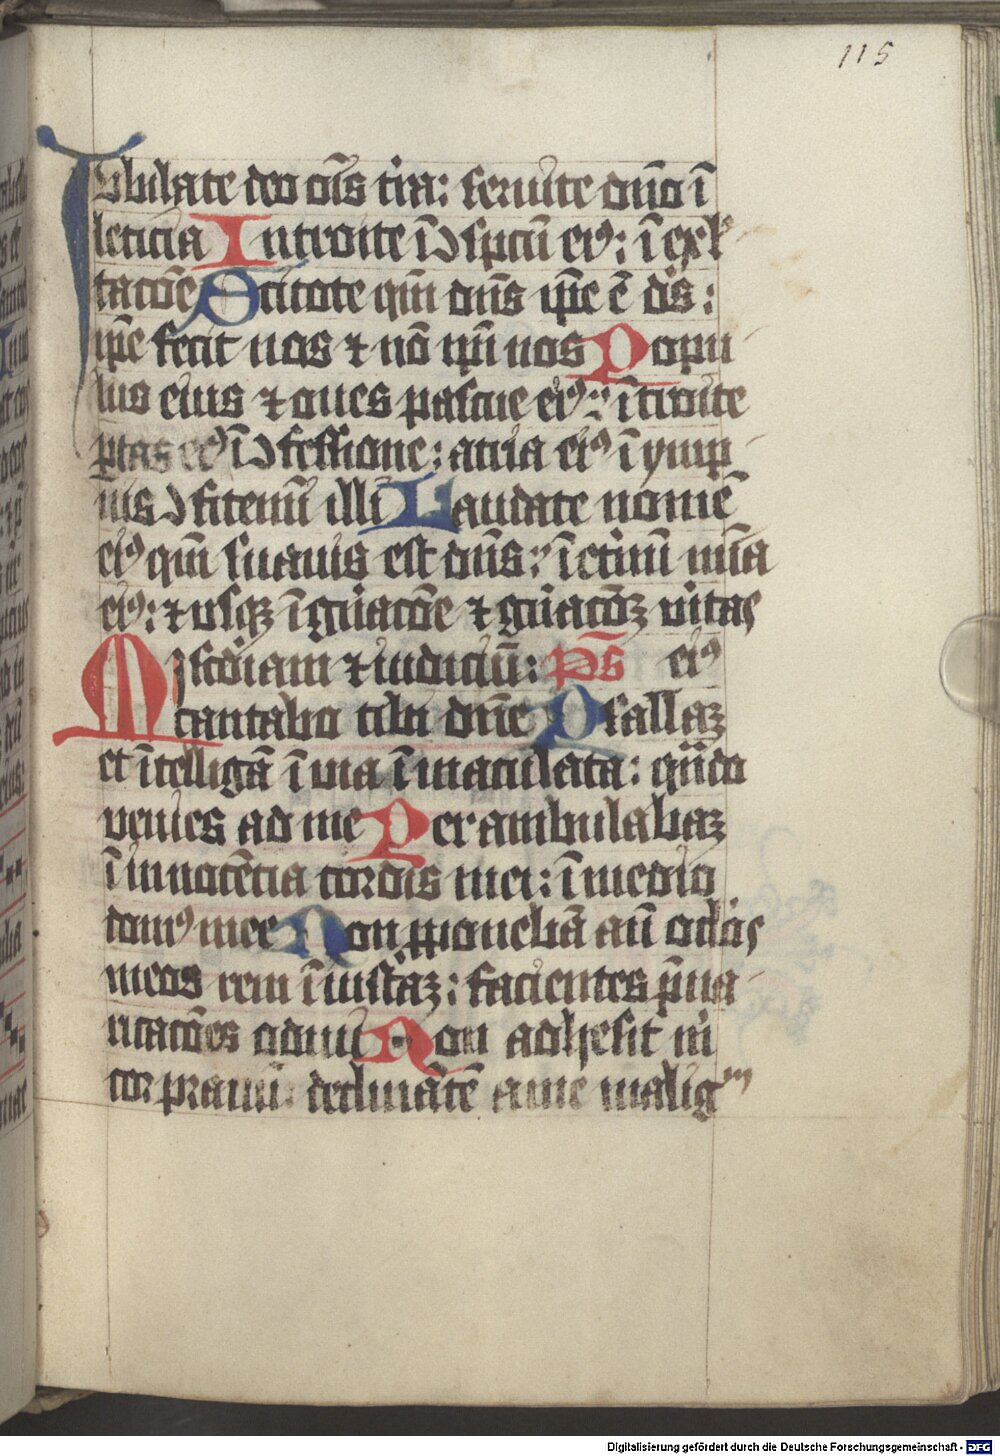 115
Jubilate deo om̄s t'ra: seruite dn̄o ī
leticia Introite ī ↄspectū ei9: ī exl'
tacōe Scitote qm̄ dn̄s ip̄e ē ds̄:
ip̄e fecit nos ⁊ nō ip̄i nos Popu
lus eius ⁊ oues pascue ei9: īt'oite
portas ei9 ī ↄfessione: atria ei9 ī ymp
nis ↄfitemī illi Laudate nomē
ei9 qm̄ suauis est dn̄s: ī et'nū mīa
ei9: ⁊ usqꝫ ī gn̄acōe ⁊ gn̄acōꝫ u'itas
Misc'diam ⁊ iudiciū: ps̄ ei9
cantabo tibi dn̄e Psallaꝫ
et ītelligā ī uia īmaculata: qn̄do
venies ad me Perambulabaꝫ
ī innocētia cordis mei: ī medio
dom9 mee Non ꝓponebā an̄ oc'los
meos rem īiustaꝫ: facientes p̄ua
ricacōes odiui Non adhesit m'
cor prauū: declinātē a me malig
Digitalisierung gefördert durch die Deutsche Forschungsgemeinschaft - DFG